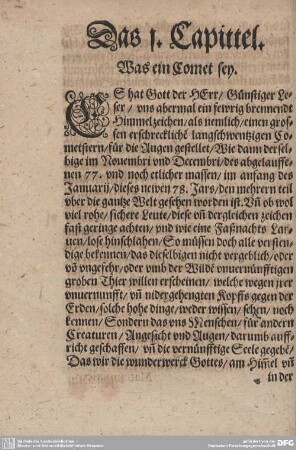 Das 1. Capittel.
Was ein Comet sey.
ES hat Gott der HErr/ Günstiger Le-
ser/ vns abermal ein fewrig brennendt
Himmelzeichen/ als nemlich/ einen gros-
sen erschrecklichē langschwentzigen Co-
metstern/ für die Augen gestellet/ Wie dann dersel-
bige im Nouembri vnd Decembri/ des abgelauffe-
nen 77. vnd noch etlicher massen/ im anfang des
Januarij/ dieses newen 78. Jars/ den mehrern teil
vber die gantze Welt gesehen worden ist. Vñ ob wol
viel rohe/ sichere Leute/ diese vñ dergleichen zeichen
fast geringe achten/ vnd wie eine Faßnachts Lar-
uen/ lose hinschlahen/ So müssen doch alle versten-
dige bekennen/ das dieselbigen nicht vergebens/ oder
vō vngefehr/ oder vmb der Wildē vnuernünfftigen
groben Thier willen erscheinen/ welche wegen jrer
vnuernunfft/ vñ nidergehengten Kopffs gegen der
Erden/ solche hohe dinge/ weder wissen/ sehen/ noch
kennen/ Sondern das vns Menschen/ für andern
Creaturen/ Angesicht vnd Augen/ darumb auff-
richt geschaffen/ vñ die vernünfftige Seele gegebē/
Das wir die wunderwerck Gottes/ am Him̃el vñ
in der